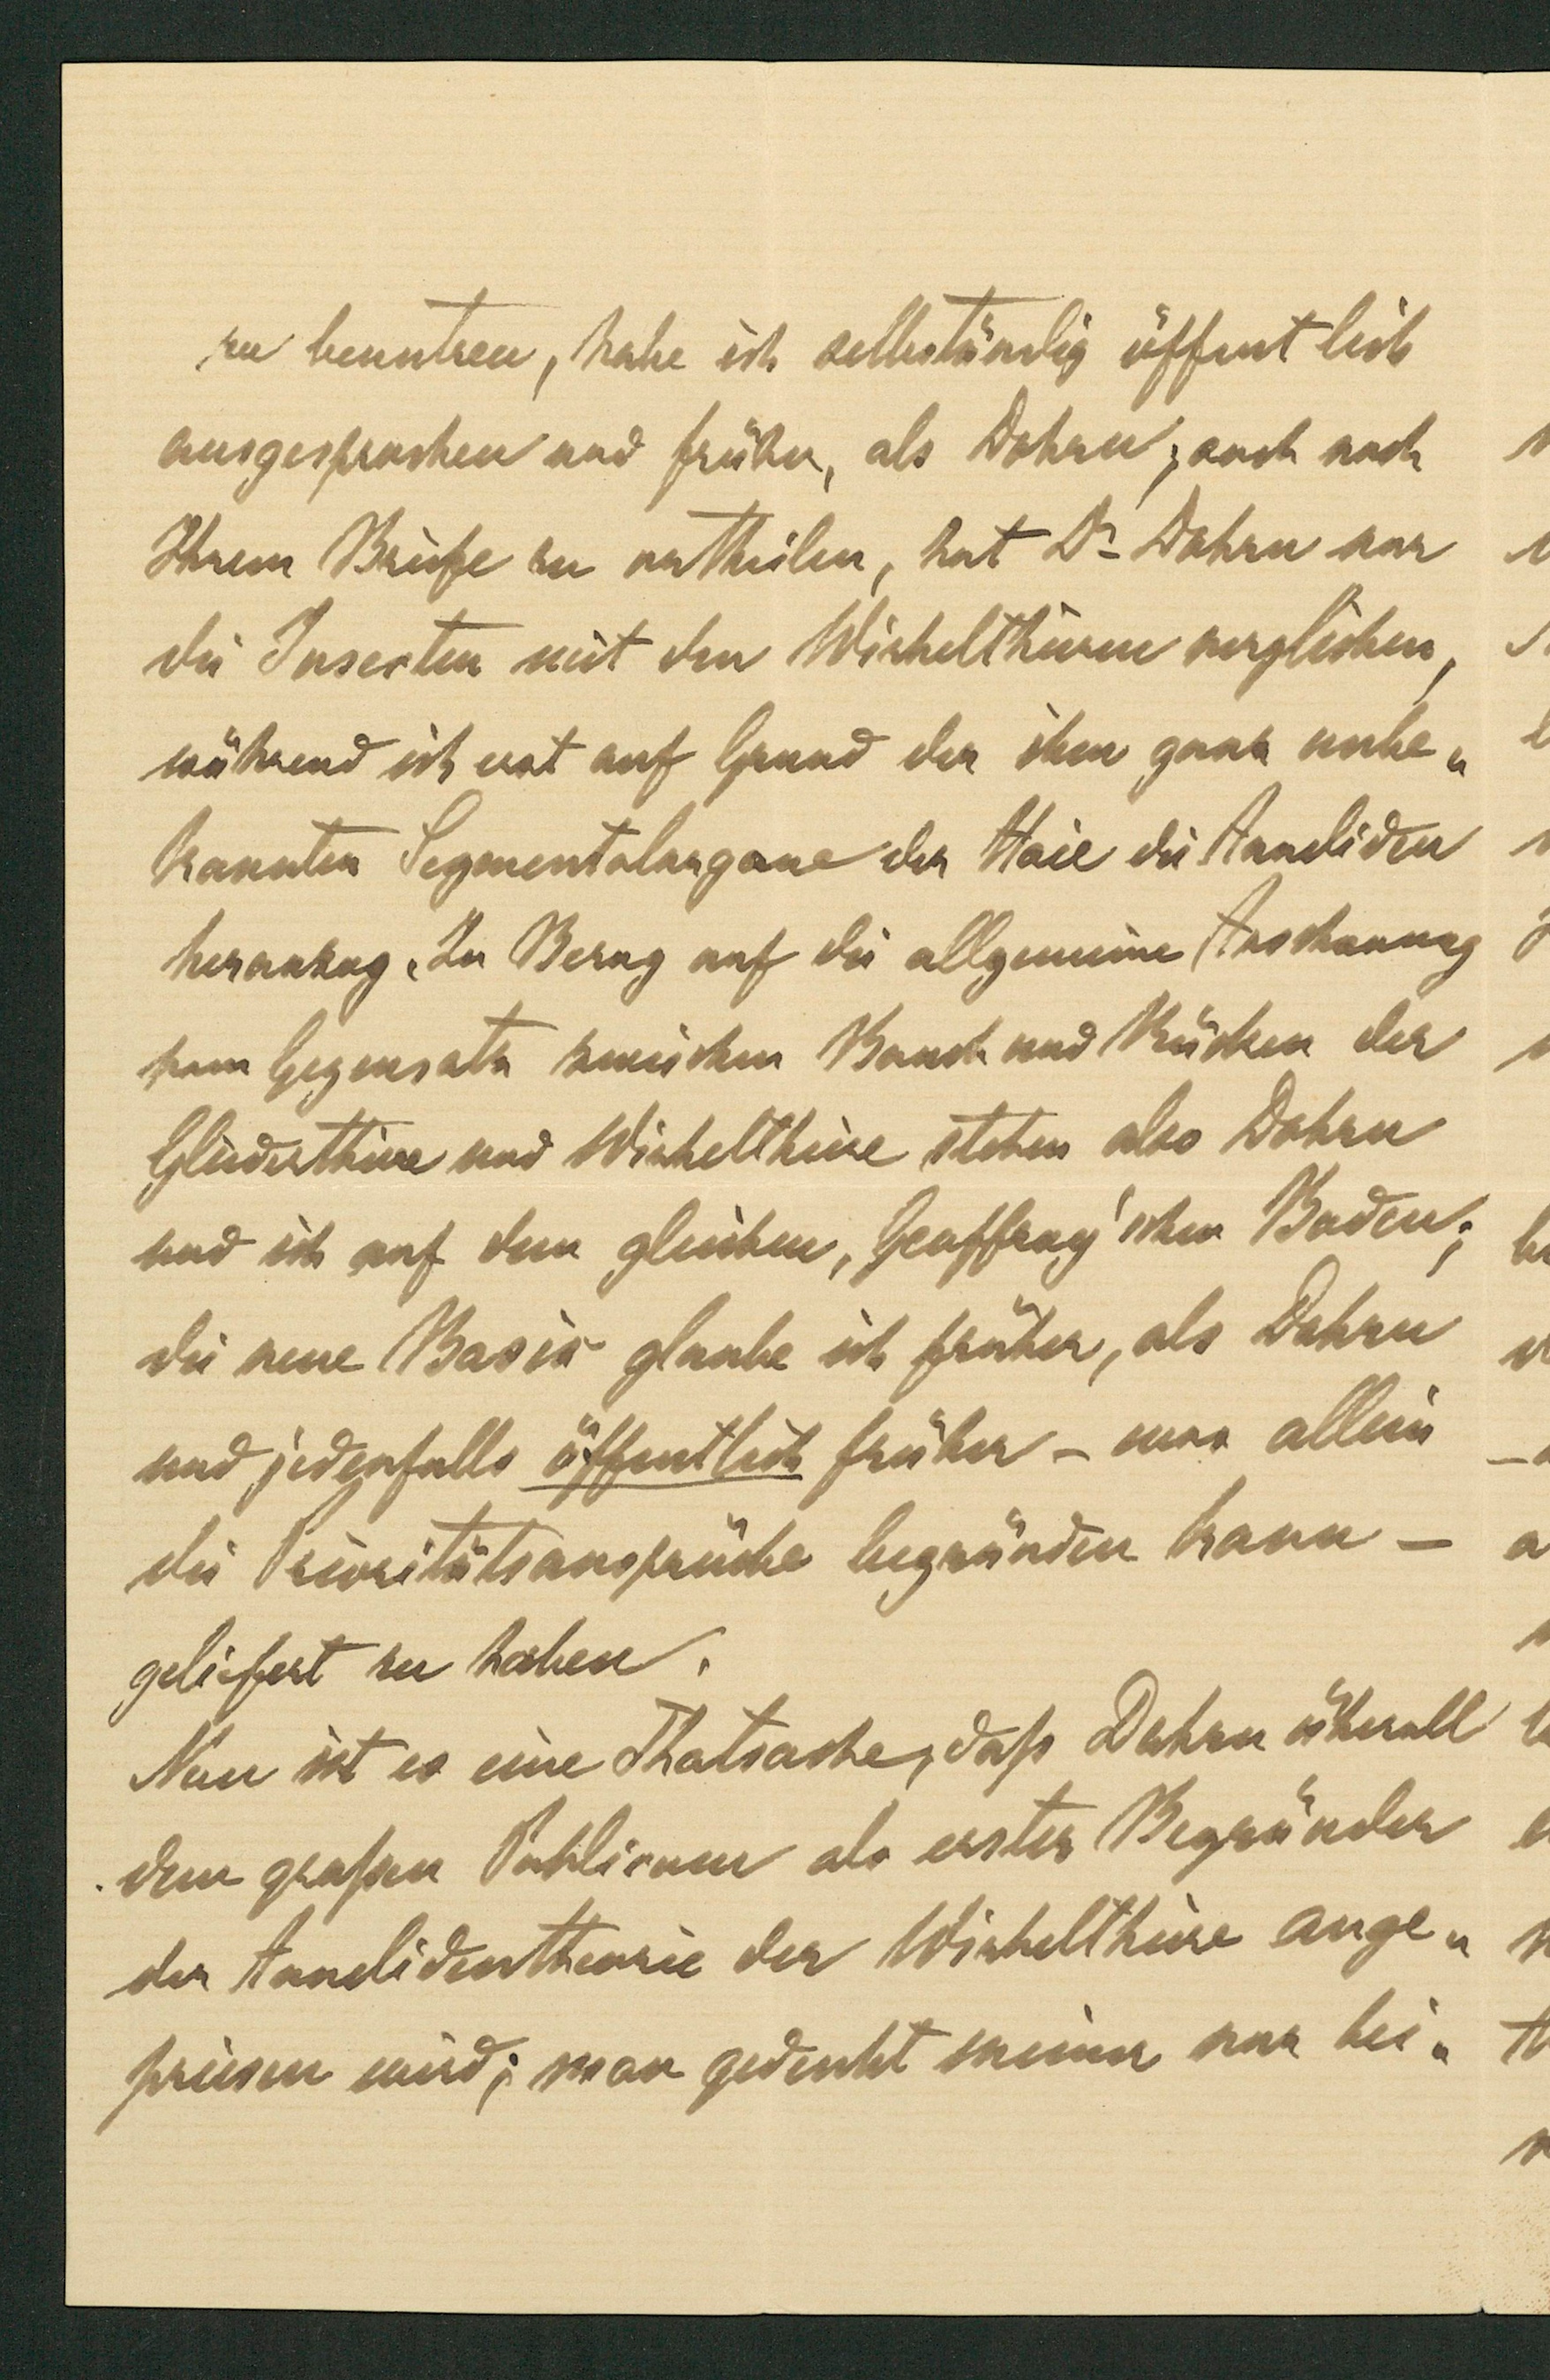 zu benutzen, habe ich selbständig öffentlich
ausgesprochen und früher, als Dohrn; auch nach
Ihrem Briefe zu urtheilen, hat Dr Dohrn nur
die Insecten mit den Wirbelthieren verglichen,
während ich erst auf Grund der ihm ganz unbe„
kannten Segmentalorgane der Haie die Anneliden
heranzog. In Bezug auf die allgemeine Anschauung
vom Gegensatz zwischen Bauch und Rücken der
Gliederthiere und Wirbelthiere stehen also Dohrn
und ich auf dem gleichen, Geoffroy'schen Boden;
die neue Basis glaube ich früher, als Dohrn
und jedenfalls öffentlich früher – was allein
die Prioritätsansprüche begründen kann –
geliefert zu haben.
Nun ist es eine Thatsache, daß Dohrn überall
dem großen Publicum als erster Begründer
der Annelidentheorie der Wirbelthiere ange„
priesen wird; man gedenkt meiner nur bei„